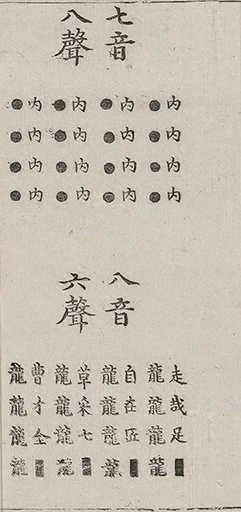 七音
八聲
内内内内
●●●●
内内内内
●●●●
内内内内
●●●●
内内内内
●●●●
八音
六聲
走哉足■
龍龍龍龍
自在匠■
龍龍龍龍
草采七■
龍龍龍龍
曹才全■
龍龍龍龍